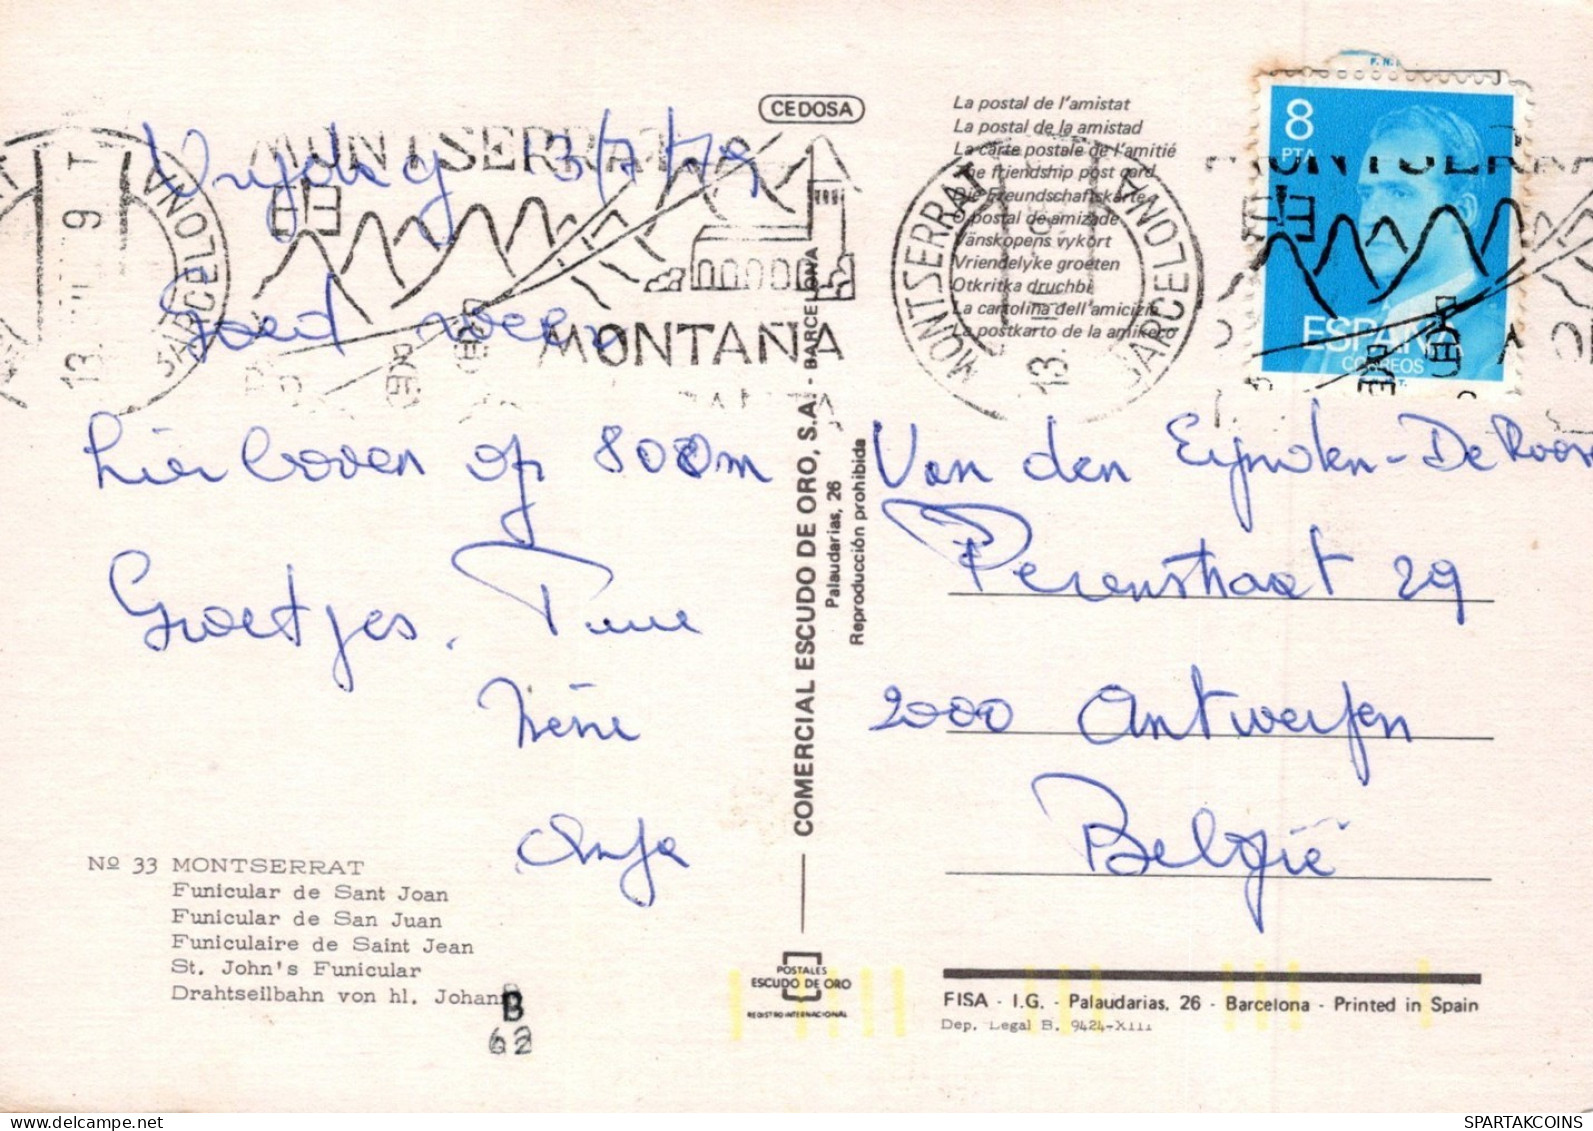 CEDOSA
La postal de l'amistat
La postal de la amistad
La carte postale de l'amitié
The friendship post card
Die Freundschaftskarte
O postal de amizade
Vänskopens vykort
Vriendelyke groeten
Otkritka druchbi
La cartolina dell'amicizia
La postkarto de la amikeco
8
PTA
ESPAÑA
CORREOS
MONTSERRAT
MONTAÑA
MONTSERRAT
BARCELONA
13.
9
Vrijdag 13/7/79
Goed weer
hier boven op 800m
Groetjes.
Irène
Anja
Van den Eijnden - De Roos
Perenstraat 29
2000 Antwerpen
België
COMERCIAL ESCUDO DE ORO, S.A. - BARCELONA
Palaudarias, 26
Reproducción prohibida
Nº 33 MONTSERRAT
Funicular de Sant Joan
Funicular de San Juan
Funiculaire de Saint Jean
St. John's Funicular
Drahtseilbahn von hl. Johann
B
62
POSTALES
ESCUDO DE ORO
REGISTRO INTERNACIONAL
FISA - I.G. - Palaudarias, 26 - Barcelona - Printed in Spain
Dep. Legal B. 9424-XIII
SPARTAKCOINS